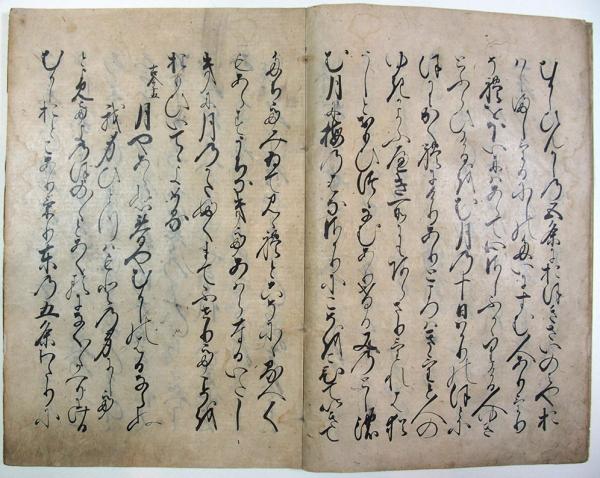 むかしひんかしの五条におほきさいの宮お
はしましけるにしのたいにすむ人ありけり
それをほいにはあらて心さしふかゝりける人ゆき
とふらひけるをむ月の十日はかりのほとに
ほかにかくれにけりありところはきけと人の
ゆきかよふへき所にもあらさりけれは猶
うしとおもひつゝなむありける又のとしの
む月に梅の花さかりにこそをこひていきて
たちてみゐてみれとこそににるへく
もあらすうちなきてあはらなるいたし
きに月のかたふくまてふせりてこそを
おもひいてゝよめる
古今五
月やあらぬ春やむかしの春ならぬ
我身ひとつはもとの身にして
とよみて夜のほの〳〵とあくるになく〳〵かへりにける
むかしおとこありけり東の五条わたりに